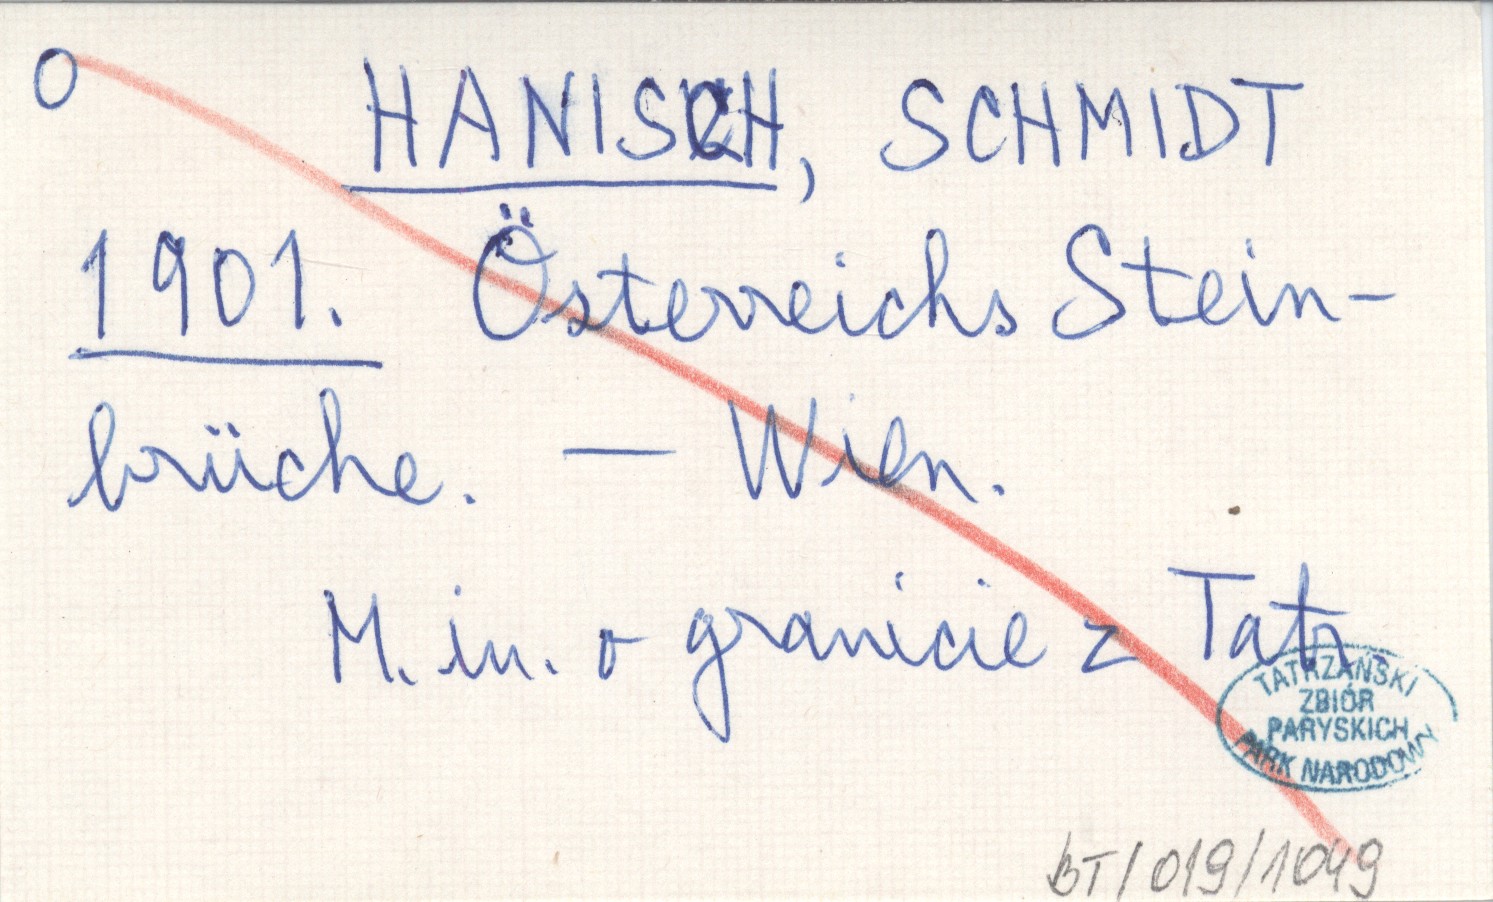 O
HANISCH, SCHMIDT
1901. Österreichs Stein-
brüche. — Wien.
M. in. o granicie z Tatr.
TATRZAŃSKI
ZBIÓR
PARYSKICH
PARK NARODOWY
BT/019/1049